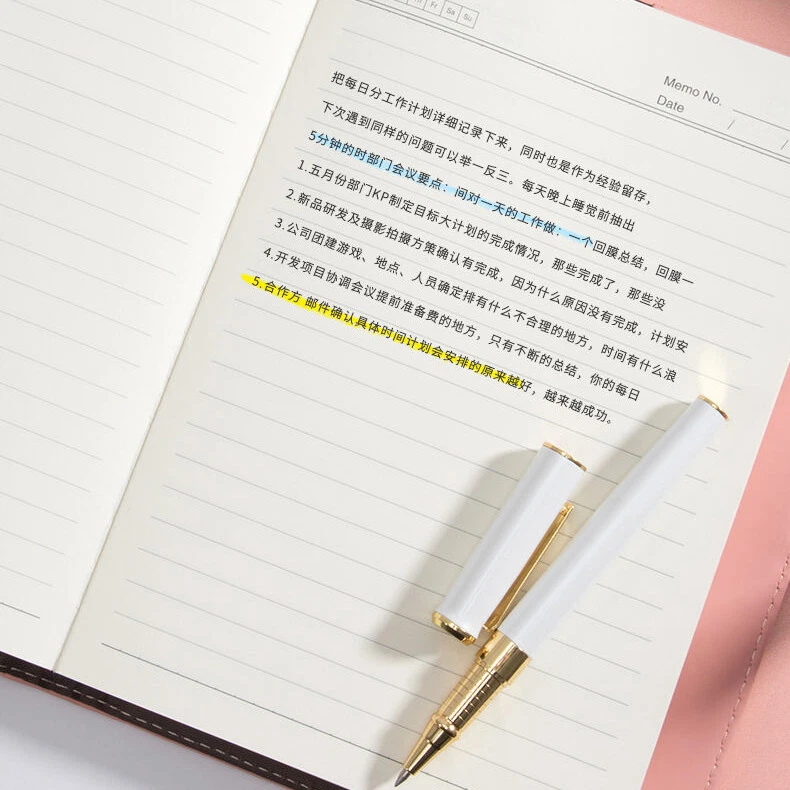 Fr Sa Su
Memo No.
Date / /
把每日分工作计划详细记录下来，同时也是作为经验留存，
下次遇到同样的问题可以举一反三。每天晚上睡觉前抽出
5分钟的时部门会议要点：间对一天的工作做：一个回膜总结，回膜一
1.五月份部门KP制定目标大计划的完成情况，那些完成了，那些没
2.新品研发及摄影拍摄方策确认有完成，因为什么原因没有完成，计划安
3.公司团建游戏、地点、人员确定排有什么不合理的地方，时间有什么浪
4.开发项目协调会议提前准备费的地方，只有不断的总结，你的每日
5.合作方 邮件确认具体时间计划会安排的原来越好，越来越成功。